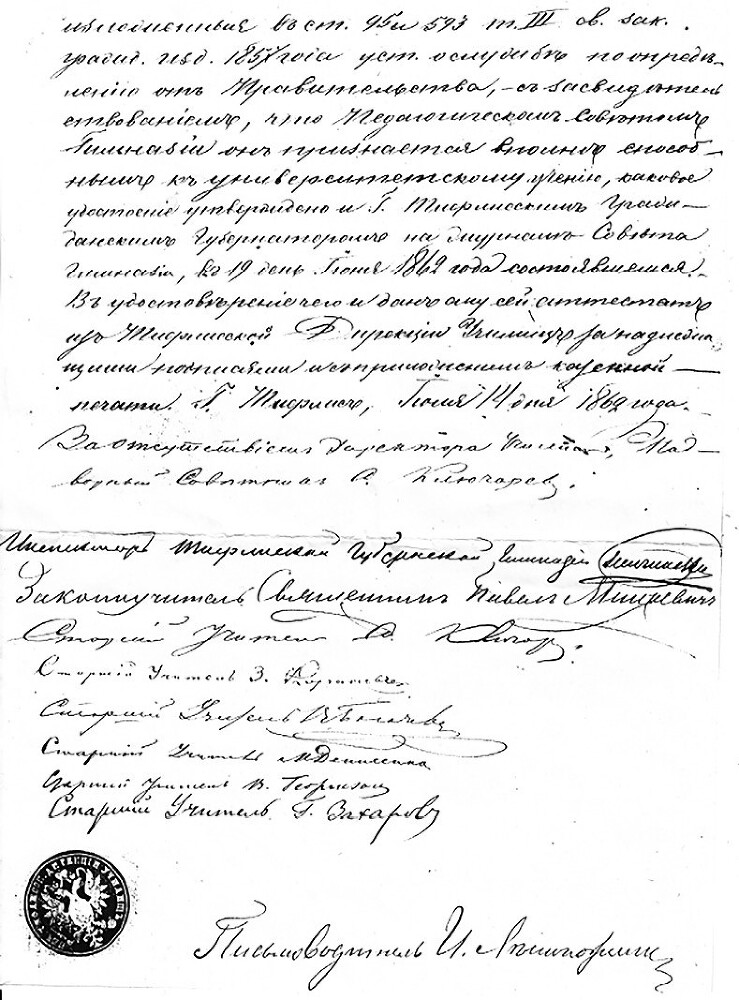 изъясненныя въ ст. 95 и 593 т. III св. зак.
гражд. изд. 1857 года уст. о службѣ по опредѣ-
ленію отъ Правительства, – съ засвидѣтель
ствованіемъ, что Педагогическимъ Совѣтомъ
Гимназіи онъ признается вполнѣ способ-
нымъ къ университетскому ученію, каковое
удостоеніе утверждено и Г. Тифлисскимъ Граж-
данскимъ Губернаторомъ на журналѣ Совѣта
Гимназіи, въ 19 день Іюня 1862 года состоявшемся.
Въ удостовѣреніе чего и данъ ему сей аттестатъ
изъ Тифлисской Дирекціи Училищъ за надлежа-
щими подписями и съ приложеніемъ казенной
печати. Г. Тифлисъ, Іюля 14 дня 1862 года.
За отсутствіемъ Директора Училищъ, Над-
ворный Совѣтникъ Ключаревъ.
Инспекторъ Тифлисской Губернской Гимназіи
Законоучитель Священникъ Павелъ
Старшій Учитель
Старшій Учитель З.
Старшій Учитель
Старшій Учитель М.
Старшій Учитель В.
Старшій Учитель Г. Захаровъ
Письмоводитель И.